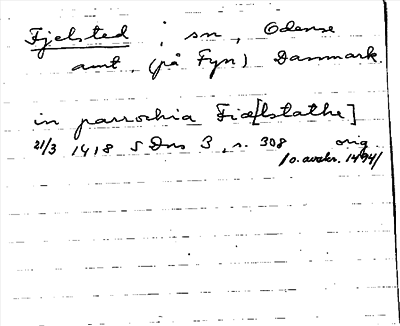 Fjelsted ; sn, Odense
amt, (på Fyn) Danmark.
in parrochia Fiæ[lstathe]
21/3 1418 S Dns 3, s. 308 orig.
/o. avskr. 1494/